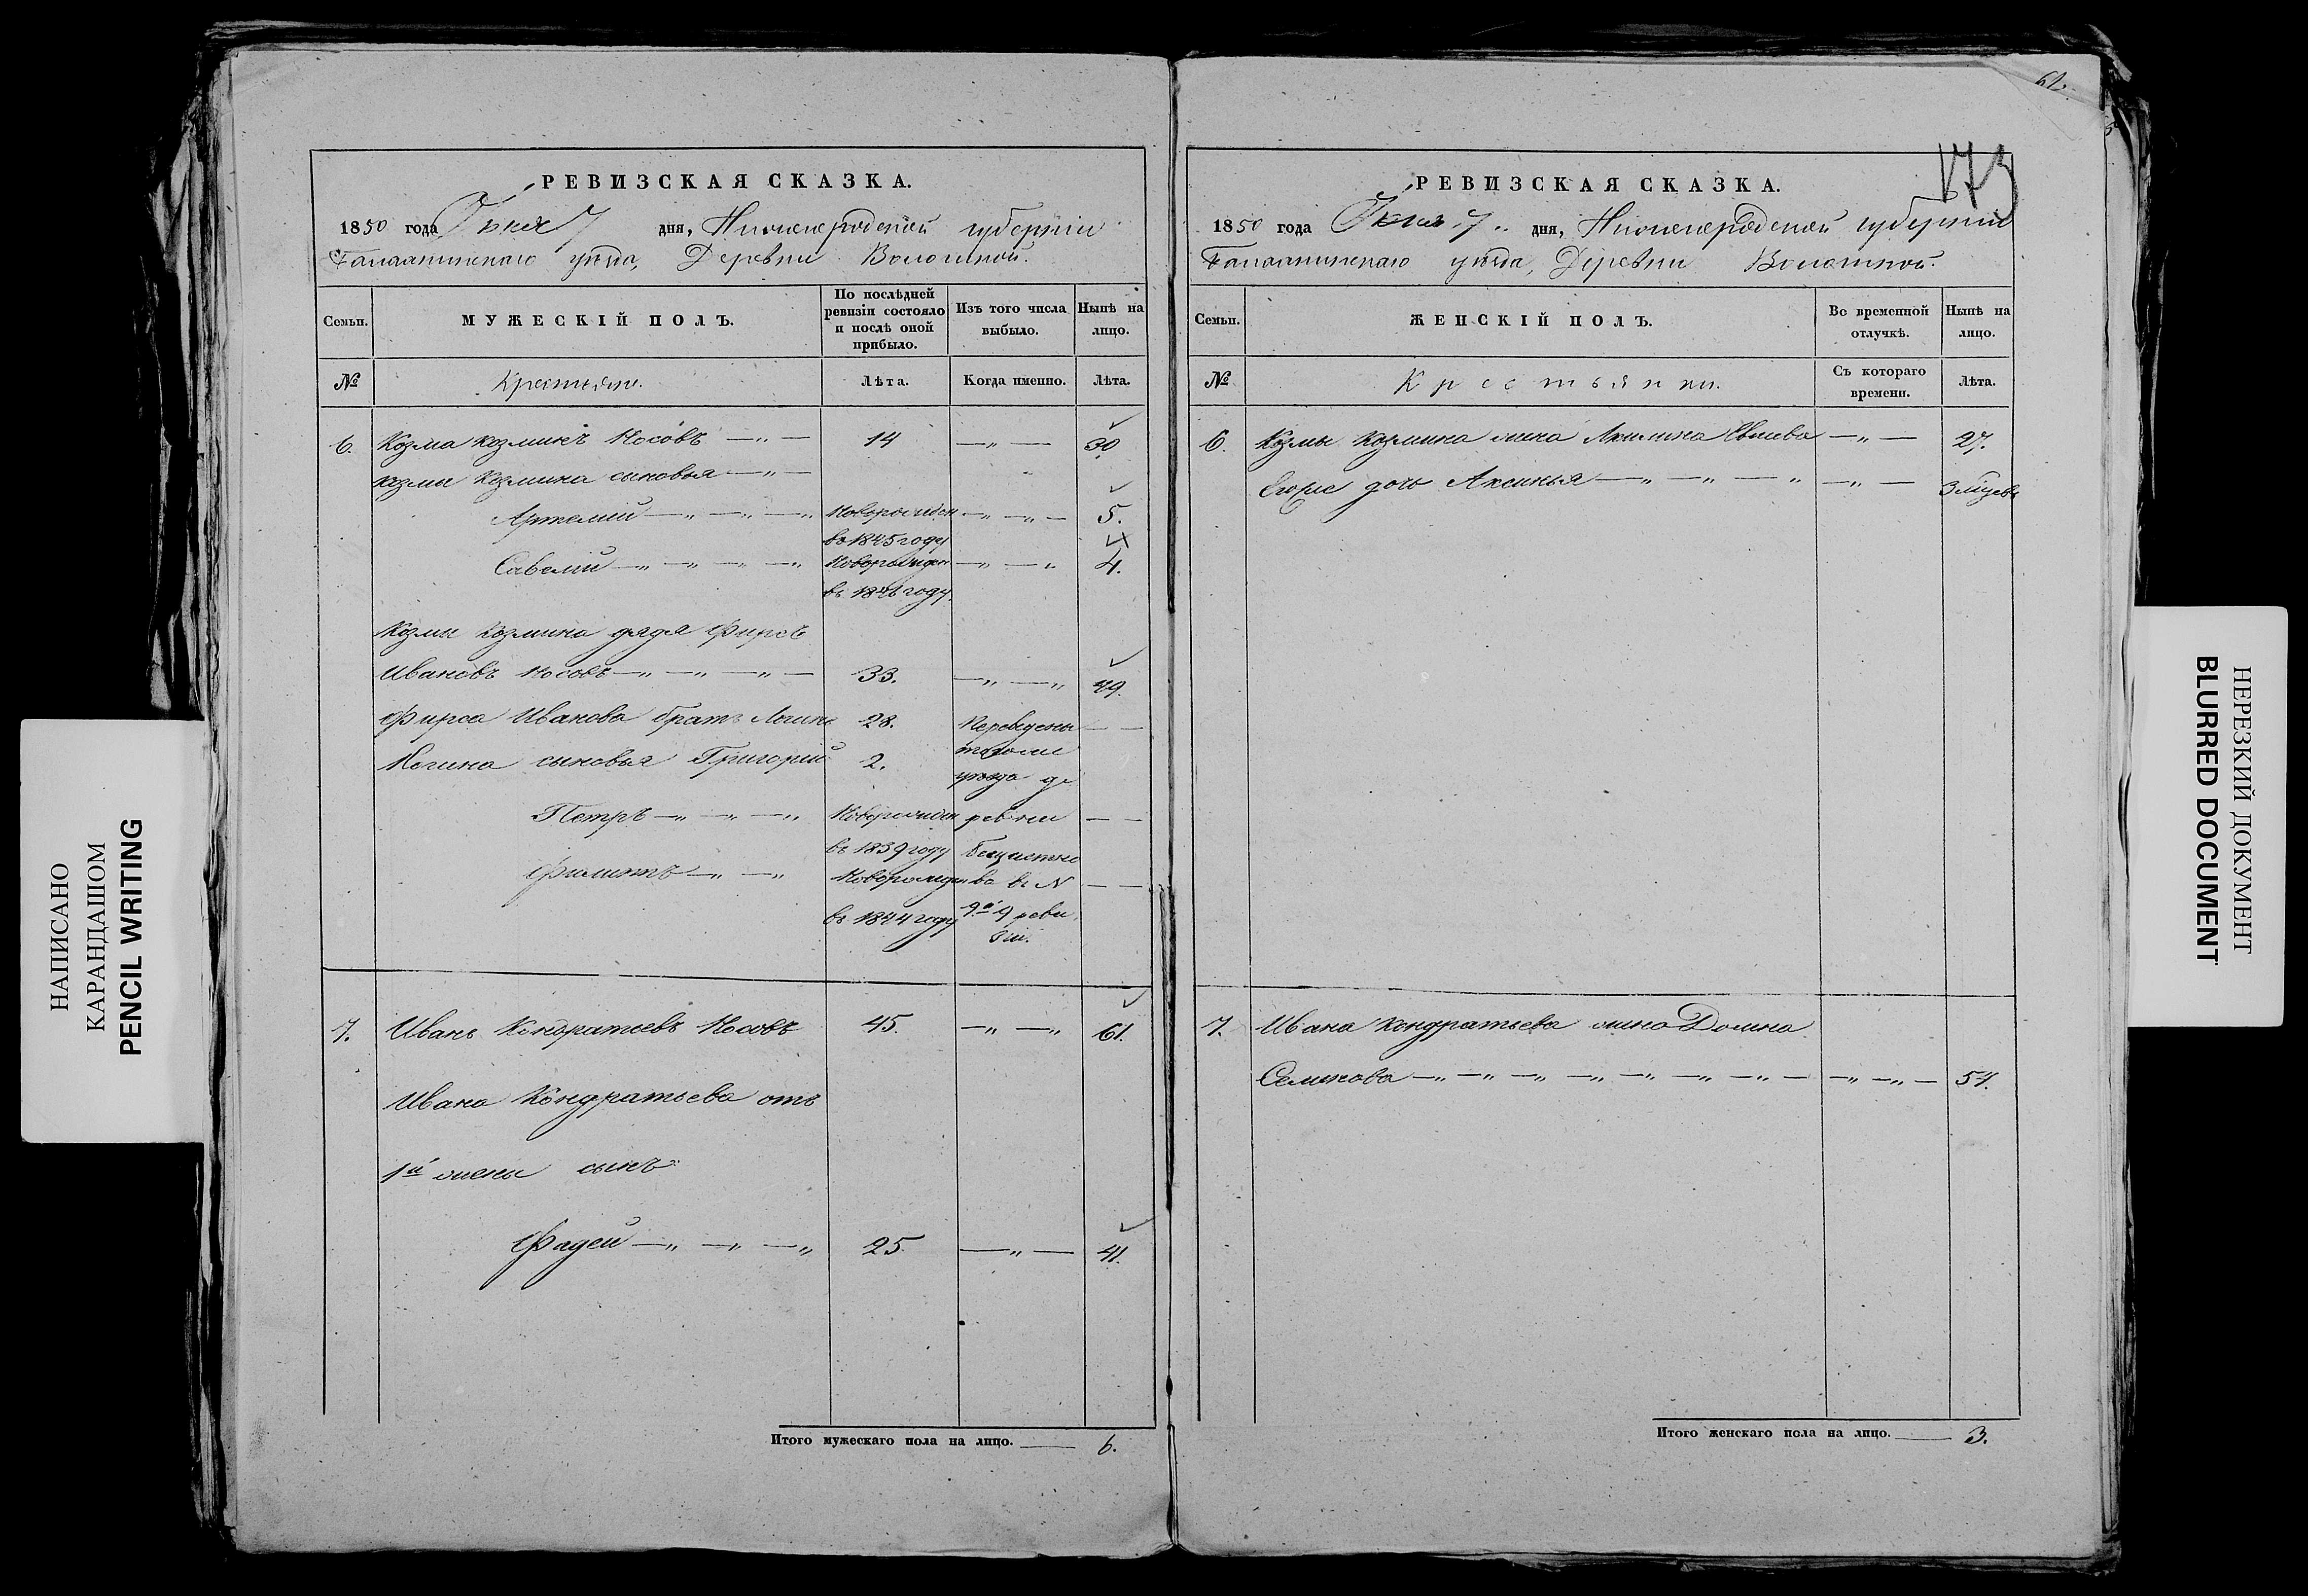 РЕВИЗСКАЯ СКАЗКА.
1850 года Июня 7 дня, Нижегородской губерніи
Балахнинскаго уѣзда, Деревни
Семьи.
МУЖЕСКІЙ ПОЛЪ.
По послѣдней ревизіи состояло и послѣ оной прибыло.
Изъ того числа выбыло.
Нынѣ на лицо.
№
Крестьяне.
Лѣта.
Когда именно.
Лѣта.
6. Козма Козминъ Носовъ 14 30
Козмы Козмина сыновья
Артемий Новорожден 5.
въ 1845 году
Савелий Новорожден 4.
въ 1846 году.
Козмы Козмина дядя Фирсъ
Ивановъ Носовъ 33. 49.
Фирса Иванова братъ Логинъ 28. Переведены
тогоже
Логина сыновья Григорий 2.
уѣзда де
Петръ Новорожден ревни
въ 1839 году
Филиппъ Новорожден ва въ №
въ 1844 году 9й 9 реви
зіи.
7. Иванъ Кондратьевъ Носовъ 45. 61.
Ивана Кондратьева отъ
1й жены сынъ
Фадей 25 41.
Итого мужескаго пола на лицо. 6.
61.
173
РЕВИЗСКАЯ СКАЗКА.
1850 года Июня 7 дня, Нижегородской губерніи
Балахнинскаго уѣзда, Деревни
Семьи.
ЖЕНСКІЙ ПОЛЪ.
Во временной отлучкѣ.
Нынѣ на лицо.
№
Крестьянки.
Съ котораго времени.
Лѣта.
6. Козмы Козмина жена Акилина 27.
дочь Аксинья
7. Ивана Кондратьева жена Домна
Семенова 54.
Итого женскаго пола на лицо. 3.
НАПИСАНО
КАРАНДАШОМ
PENCIL WRITING
НЕРЕЗКИЙ ДОКУМЕНТ
BLURRED DOCUMENT